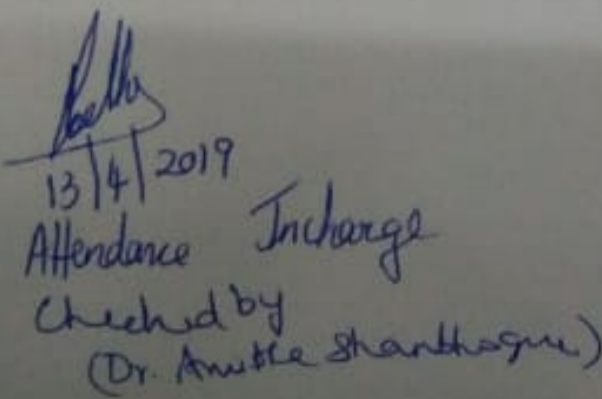 13/4/2019
Attendance Incharge
Checked by
(Dr. Anusha Shanbhogue)